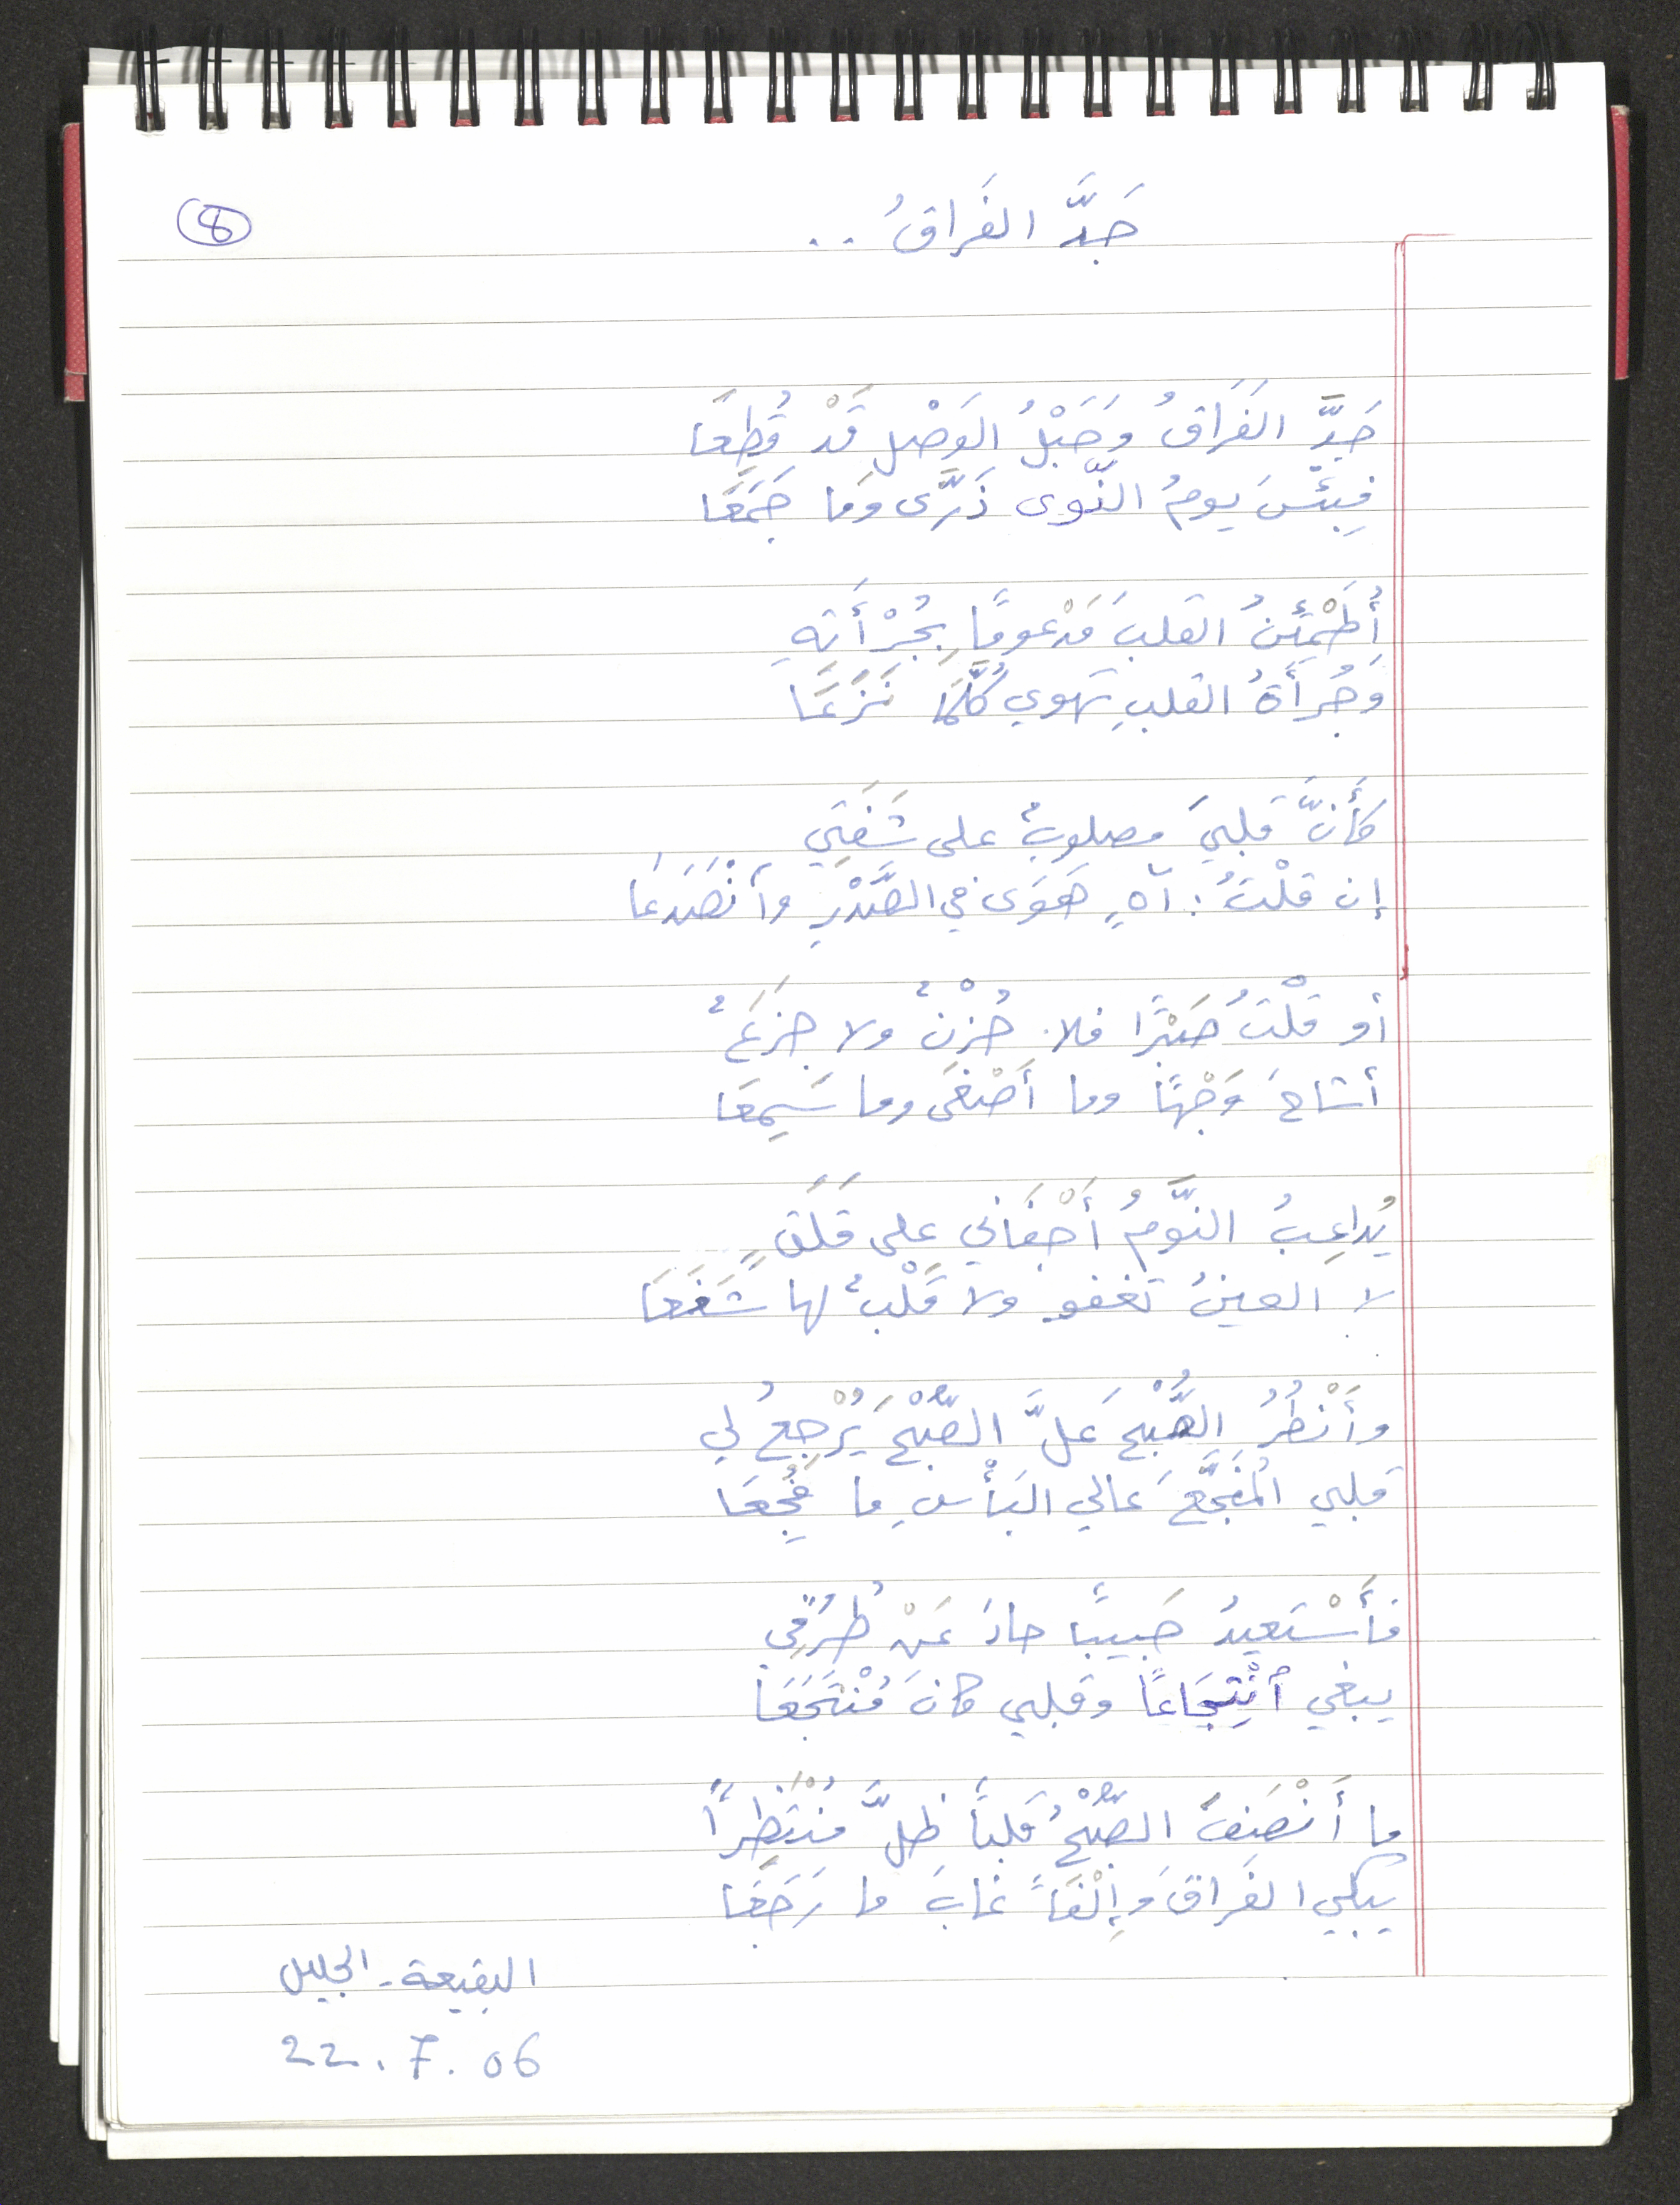 8
جَدَّ الفَراقُ ..
جَدَّ الفَرَاقُ وَحَبْلُ الوَصْلِ قَدْ قُطِعَا
فَبِئْسَ يومُ النَّوى ذَرَّى وَمَا جَمَعَا
أُطَمْئِنُ القلبَ مَدْعومًا بِجُرْأَتِهِ
وَجُرأَةُ القلبِ تَهوي كُلَّمَا نَزَعَا
كأَنَّ قَلبيَ مصلوبٌ على شَفَتَيِ
إن قلْتُ : آهٍ هَوَى في الصَّدْرِ وٱنْصَدَعا
أو قلْتُ صَبْرًا فلا حُزْنٌ ولا جزَعٌ
أشاحَ وَجْهًا وما أَصْغَى وما سَمِعَا
يُداعِبُ النَّومُ أَجْفَاني على قَلَقٍ
لا العينُ تغفو ولا قَلْبٌ لها شَفَعَا
وأَنْظُرُ الصُّبْحَ عَلَّ الصُّبْحَ يُرْجِعُ لي
قلبي المُفَجَّعَ عالي البَأْسِ ما فُجِعَا
فأَسْتَعيدُ حَبيبًا حادَ عَنْ طُرُقِي
يبغي ٱنْتِجَاعًا وقلبي كانَ مُنْتَجَعَا
ما أَنْصَفَ الصُّبْحُ قلبًا ظلَّ مُنْتَظِرًا
يبكي الفَراقَ وَإِلْفَاً غابَ ما رَجَعَا
البقيعة - الجليل
22 . 7 . 06